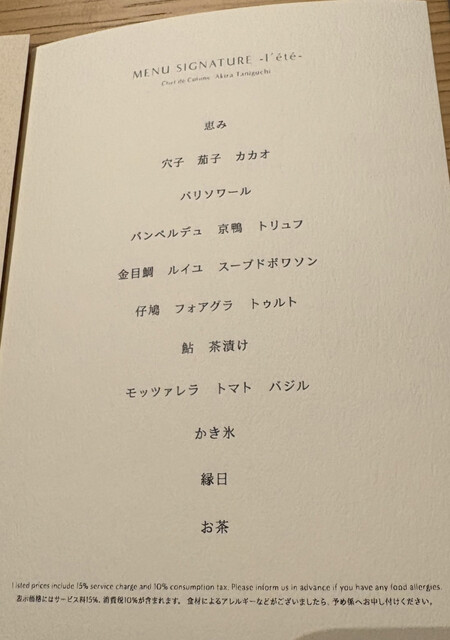 MENU SIGNATURE -l'été-
Chef de Cuisine Akira Taniguchi
恵み
穴子 茄子 カカオ
パリソワール
パンペルデュ 京鴨 トリュフ
金目鯛 ルイユ スープドポワソン
仔鳩 フォアグラ トゥルト
鮎 茶漬け
モッツァレラ トマト バジル
かき氷
縁日
お茶
Listed prices include 15% service charge and 10% consumption tax. Please inform us in advance if you have any food allergies.
表示価格にはサービス料15%、消費税10%が含まれます。 食材によるアレルギーなどがございましたら、予め係へお申し付けください。